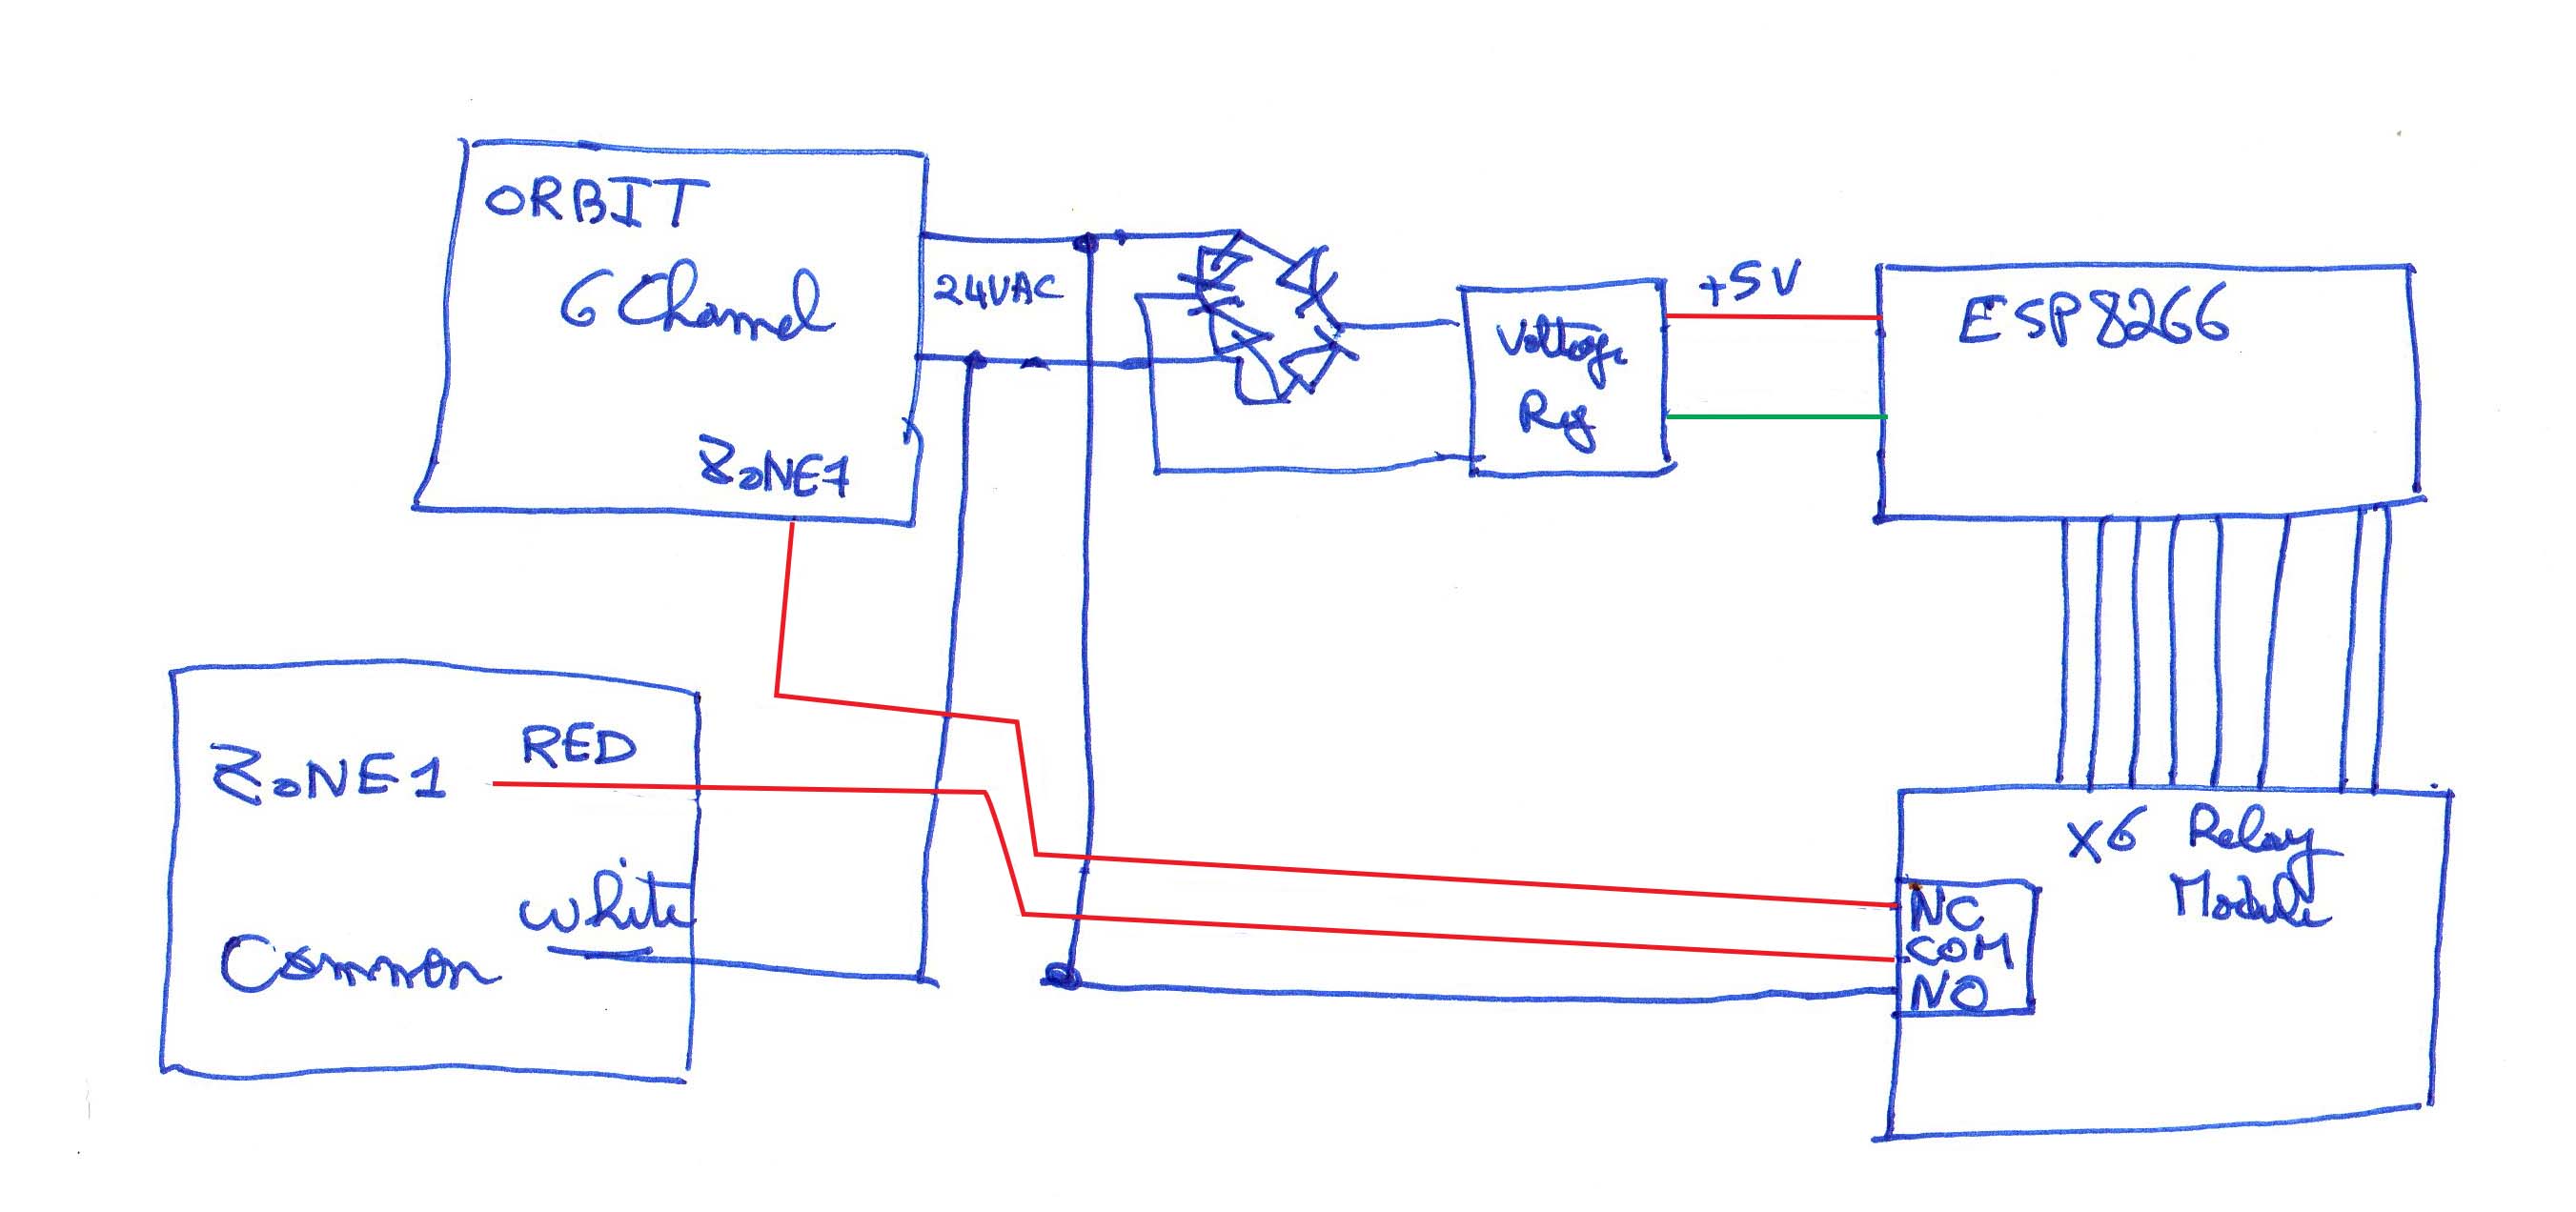 ORBIT
6 Channel
24VAC
ZONE1
Voltage
Reg
+5V
ESP8266
ZONE1
RED
White
Common
X6 Relay
Module
NC
COM
NO